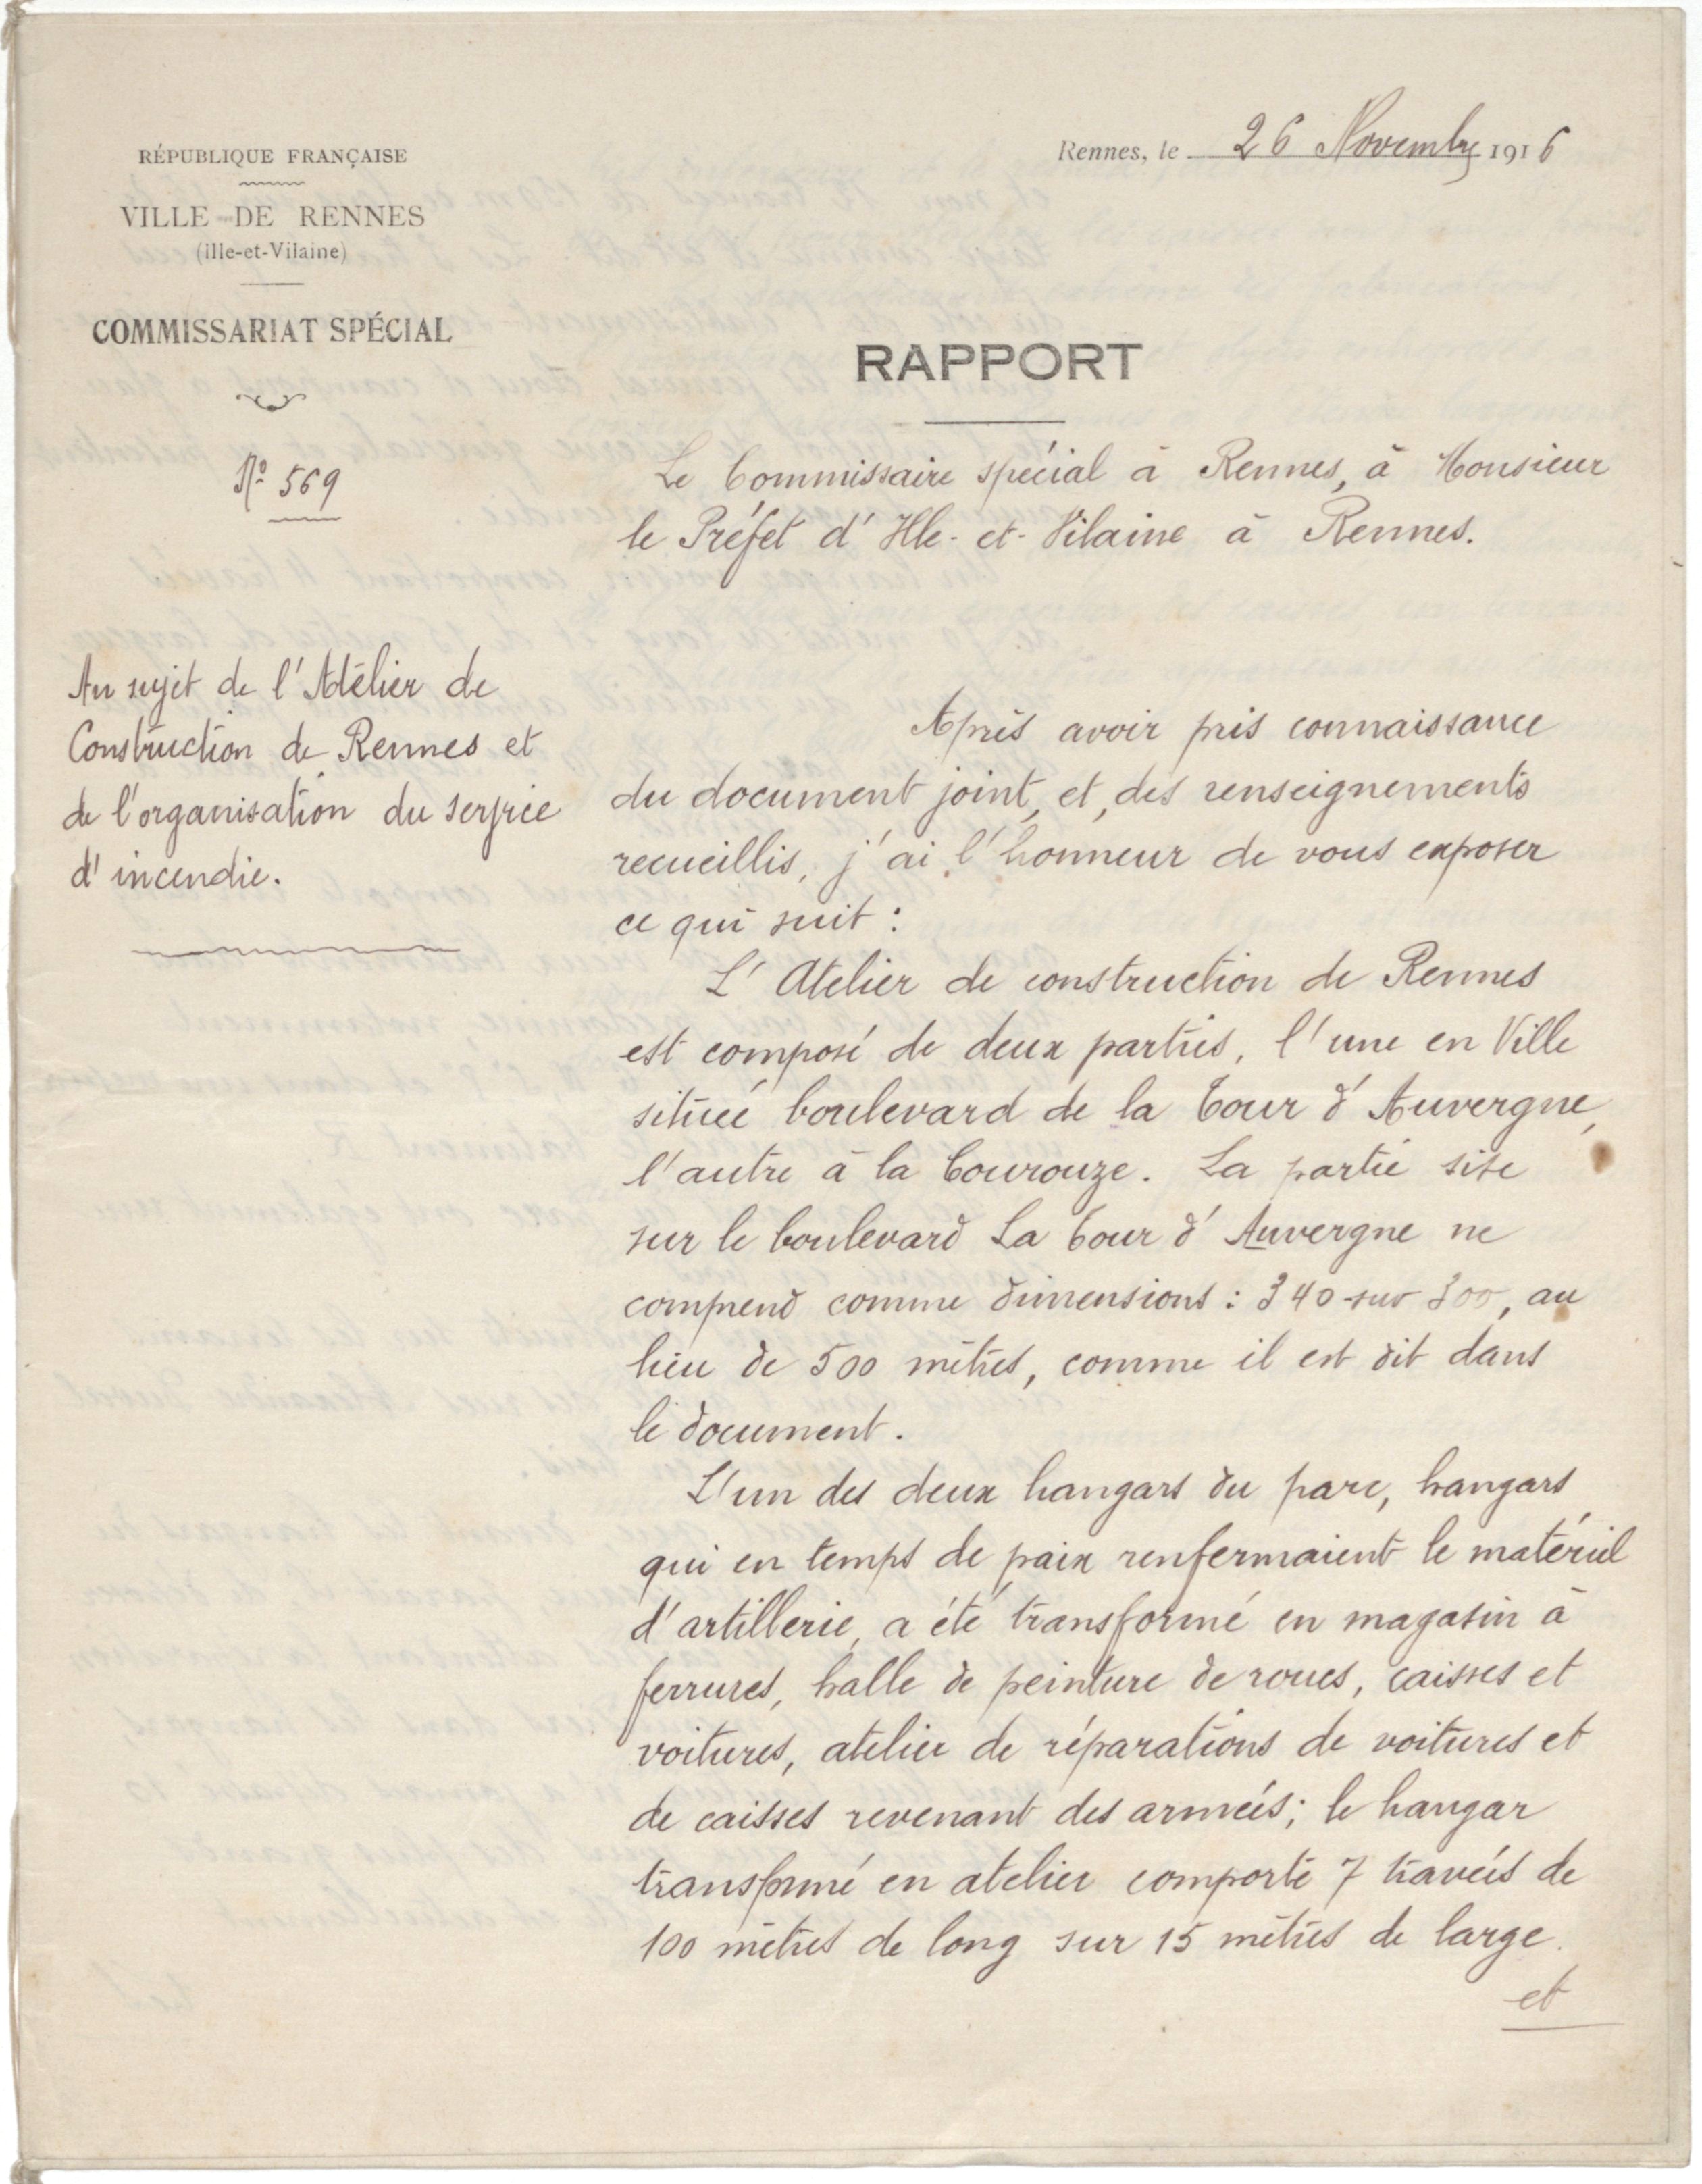 RÉPUBLIQUE FRANÇAISE
VILLE DE RENNES
(Ille-et-Vilaine)
COMMISSARIAT SPÉCIAL
Nº 569
Au sujet de l'Atélier de
Construction de Rennes et
de l'organisation du service
d'incendie.
Rennes, le 26 Novembre 1916
RAPPORT
Le Commissaire spécial à Rennes, à Monsieur
le Préfet d'Ille-et-Vilaine à Rennes.
Après avoir pris connaissance
du document joint, et, des renseignements
recueillis, j'ai l'honneur de vous exposer
ce qui suit :
L'Atelier de construction de Rennes
est composé de deux parties, l'une en Ville
située boulevard de la Tour d'Auvergne,
l'autre à la Courouze. La partie sise
sur le boulevard La Tour d'Auvergne ne
comprend comme dimensions : 340 sur 300, au
lieu de 500 mètres, comme il est dit dans
le document.
L'un des deux hangars du parc, hangars
qui en temps de paix renfermaient le matériel
d'artillerie, a été transformé en magasin à
ferrures, halle de peinture de roues, caisses et
voitures, atelier de réparations de voitures et
de caisses revenant des armées; le hangar
transformé en atelier comporte 7 travées de
100 mètres de long sur 15 mètres de large.
et